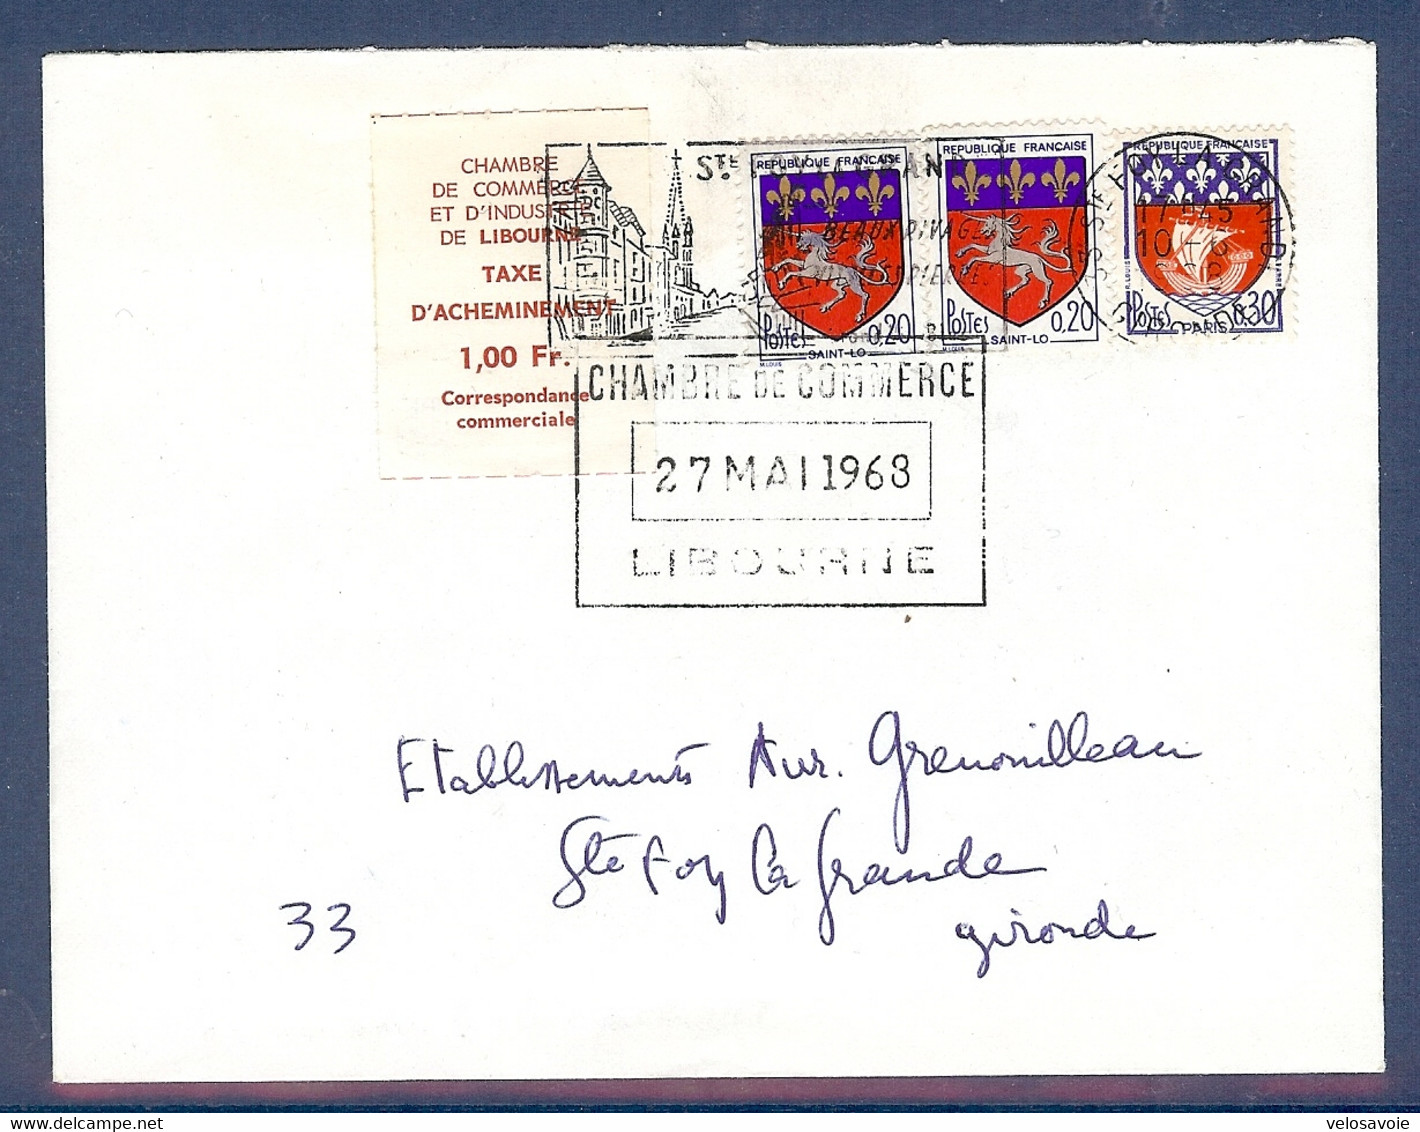 CHAMBRE
DE COMMERCE
ET D'INDUSTRIE
DE LIBOURNE
TAXE
D'ACHEMINEMENT
1,00 Fr.
Correspondance
commerciale
REPUBLIQUE FRANÇAISE
POSTES 0,20
SAINT-LO
REPUBLIQUE FRANÇAISE
POSTES 0,20
SAINT-LO
REPUBLIQUE FRANÇAISE
POSTES 0,30
PARIS
17H45
10-6
CHAMBRE DE COMMERCE
27 MAI 1968
LIBOURNE
Etablissements Aur. Grenouilleau
Ste Foy la Grande
33 gironde
www.delcampe.net
velosavoie